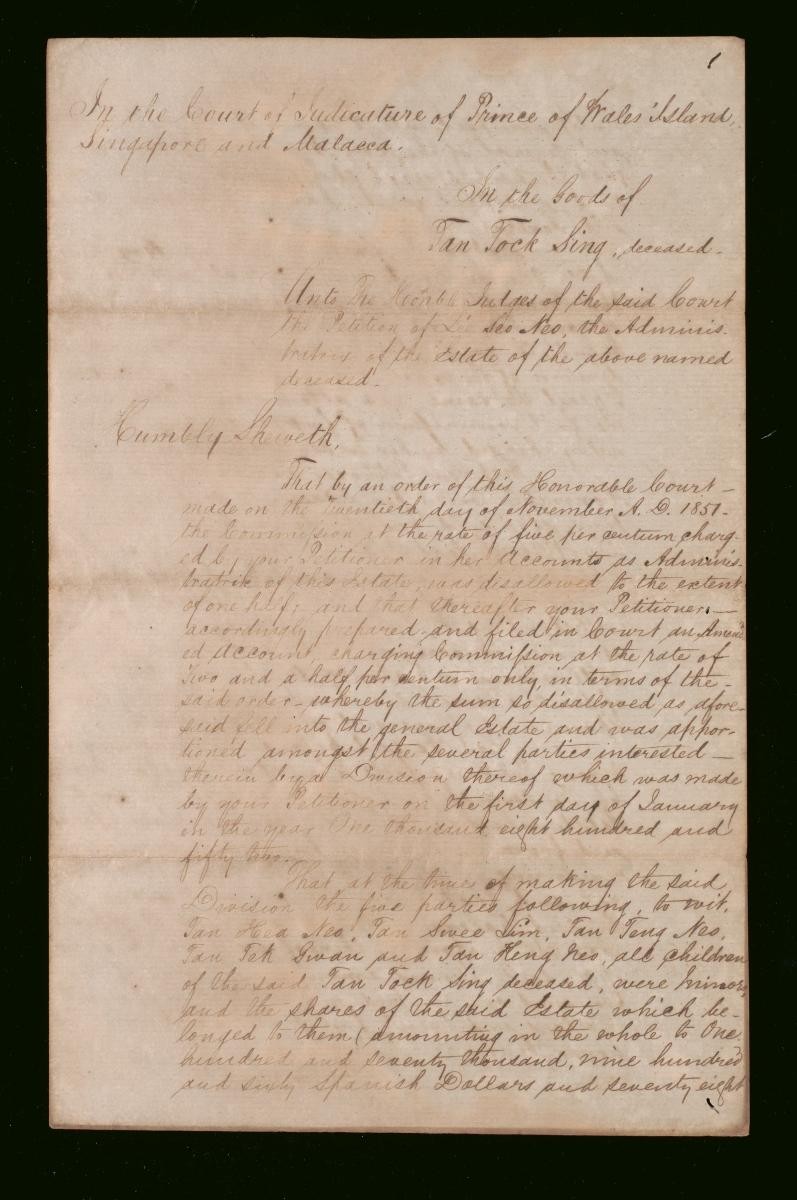 1
In the Court of Judicature of Prince of Wales' Island,
Singapore and Malacca.
In the Goods of
Tan Tock Sing, deceased.
Unto The Honble Judges of the said Court
the Petition of Lee Seo Neo, the Adminis-
tratrix of the Estate of the above named
deceased.
Humbly Sheweth,
That by an order of this Honorable Court —
made on the Twentieth day of November A. D. 1851.
the Commission at the rate of five per centum charg-
ed by your Petitioner in her Accounts as Adminis-
tratrix of this Estate, was disallowed to the extent
of one half; and that thereafter your Petitioner —
accordingly prepared and filed in Court an Amend-
ed Account, charging Commission at the rate of
Two and a half per centum only, in terms of the —
said order — whereby the sum so disallowed as afore-
said fell into the general Estate and was appor-
tioned amongst the several parties interested —
therein by a Division thereof which was made
by your Petitioner on the first day of January
in the year One thousand eight hundred and
fifty two.
That at the time of making the said
Division the five parties following, to wit,
Tan Hea Neo, Tan Swee Lim, Tan Teng Neo,
Tan Tek Gwan and Tan Heng Neo, all children
of the said Tan Tock Sing deceased, were Minors,
and the shares of the said Estate which be-
longed to them (amounting in the whole to One
hundred and seventy thousand, nine hundred
and sixty Spanish Dollars and seventy eight